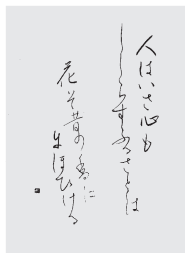 人はいさ心も
しらすふるさとは
花そ昔の香に
にほひける